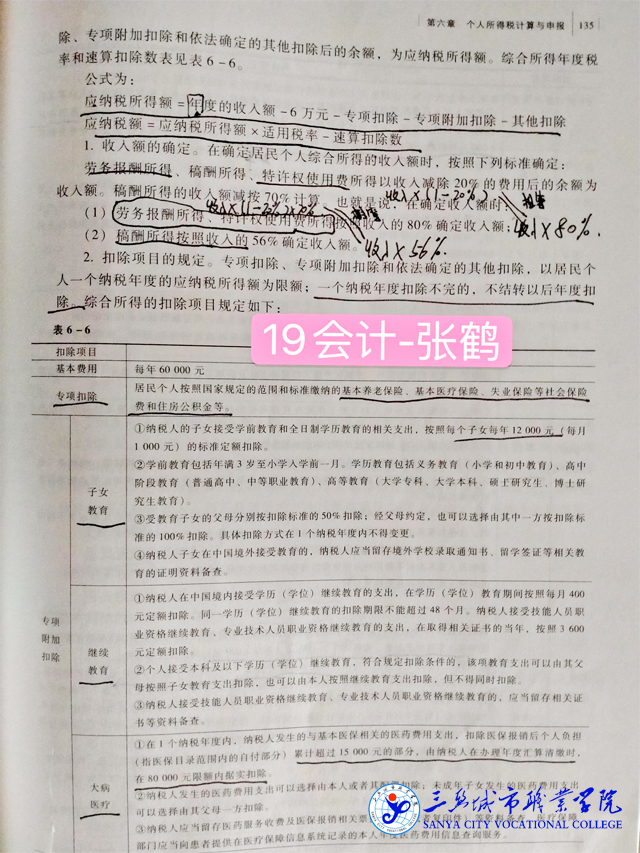 第六章 个人所得税计算与申报 135
除、专项附加扣除和依法确定的其他扣除后的余额，为应纳税所得额。综合所得年度税
率和速算扣除数表见表 6-6。
公式为：
应纳税所得额=年度的收入额-6万元-专项扣除-专项附加扣除-其他扣除
应纳税额=应纳税所得额×适用税率-速算扣除数
1. 收入额的确定。在确定居民个人综合所得的收入额时，按照下列标准确定：
劳务报酬所得、稿酬所得、特许权使用费所得以收入减除 20% 的费用后的余额为
收入额。稿酬所得的收入额减按 70% 计算。也就是说，在确定收入额时，
收入×(1-20%)
收入×(1-20%)×70%
(1) 劳务报酬所得、特许权使用费所得按照收入的 80% 确定收入额；
收入×80%.
(2) 稿酬所得按照收入的 56% 确定收入额。
收入×56%
2. 扣除项目的规定。专项扣除、专项附加扣除和依法确定的其他扣除，以居民个
人一个纳税年度的应纳税所得额为限额；一个纳税年度扣除不完的，不结转以后年度扣
除。综合所得的扣除项目规定如下：
19会计-张鹤
表 6-6
扣除项目
基本费用 每年 60 000 元
专项扣除
居民个人按照国家规定的范围和标准缴纳的基本养老保险、基本医疗保险、失业保险等社会保险
费和住房公积金等。
专项
附加
扣除
子女
教育
①纳税人的子女接受学前教育和全日制学历教育的相关支出，按照每个子女每年 12 000 元（每月
1 000 元）的标准定额扣除。
②学前教育包括年满 3 岁至小学入学前一月。学历教育包括义务教育（小学和初中教育）、高中
阶段教育（普通高中、中等职业教育）、高等教育（大学专科、大学本科、硕士研究生、博士研
究生教育）。
③受教育子女的父母分别按扣除标准的 50% 扣除；经父母约定，也可以选择由其中一方按扣除标
准的 100% 扣除。具体扣除方式在 1 个纳税年度内不得变更。
④纳税人子女在中国境外接受教育的，纳税人应当留存境外学校录取通知书、留学签证等相关教
育的证明资料备查。
继续
教育
①纳税人在中国境内接受学历（学位）继续教育的支出，在学历（学位）教育期间按照每月 400
元定额扣除。同一学历（学位）继续教育的扣除期限不能超过 48 个月。纳税人接受技能人员职
业资格继续教育、专业技术人员职业资格继续教育的支出，在取得相关证书的当年，按照 3 600
元定额扣除。
②个人接受本科及以下学历（学位）继续教育，符合规定扣除条件的，该项教育支出可以由其父
母按照子女教育支出扣除，也可以由本人按照继续教育支出扣除，但不得同时扣除。
③纳税人接受技能人员职业资格继续教育、专业技术人员职业资格继续教育的，应当留存相关证
书等资料备查。
大病
医疗
①在 1 个纳税年度内，纳税人发生的与基本医保相关的医药费用支出，扣除医保报销后个人负担
（指医保目录范围内的自付部分）累计超过 15 000 元的部分，由纳税人在办理年度汇算清缴时，
在 80 000 元限额内据实扣除。
②纳税人发生的医药费用支出可以选择由本人或者其配偶扣除；未成年子女发生的医药费用支出
可以选择由其父母一方扣除。
③纳税人应当留存医药服务收费及医保报销相关票据原件（或者复印件）等资料备查。医疗保障
部门应当向患者提供在医疗保障信息系统记录的本人年度医药费用信息查询服务。
三亚城市职业学院
SANYA CITY VOCATIONAL COLLEGE